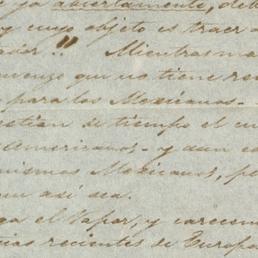 ya abiertamente, deb
y cuyo objeto es traer a
Mientras ma
venzo que no tiene re
para los Mexicanos.
de tiempo el cu
Americanos - y aun co
mismos Mexicanos, pe
que así sea.
ga el Vapor, y carecem
cias recientes de Europa